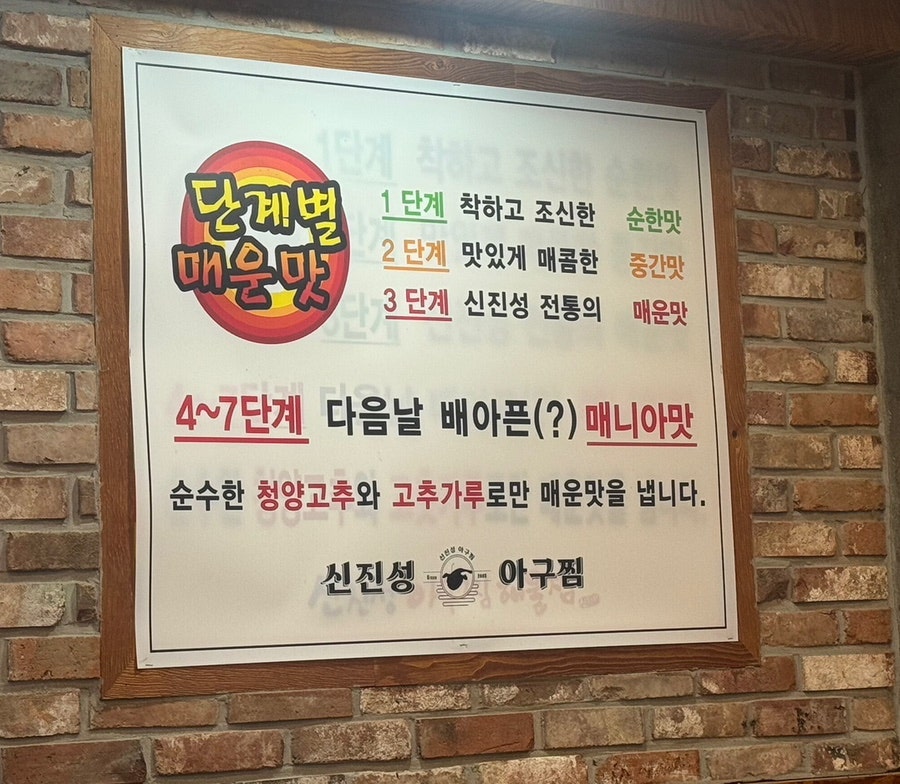 단계별
매운맛
1단계 착하고 조신한 순한맛
2단계 맛있게 매콤한 중간맛
3단계 신진성 전통의 매운맛
4~7단계 다음날 배아픈(?) 매니아맛
순수한 청양고추와 고추가루로만 매운맛을 냅니다.
신진성 아구찜
신진성 아구찜